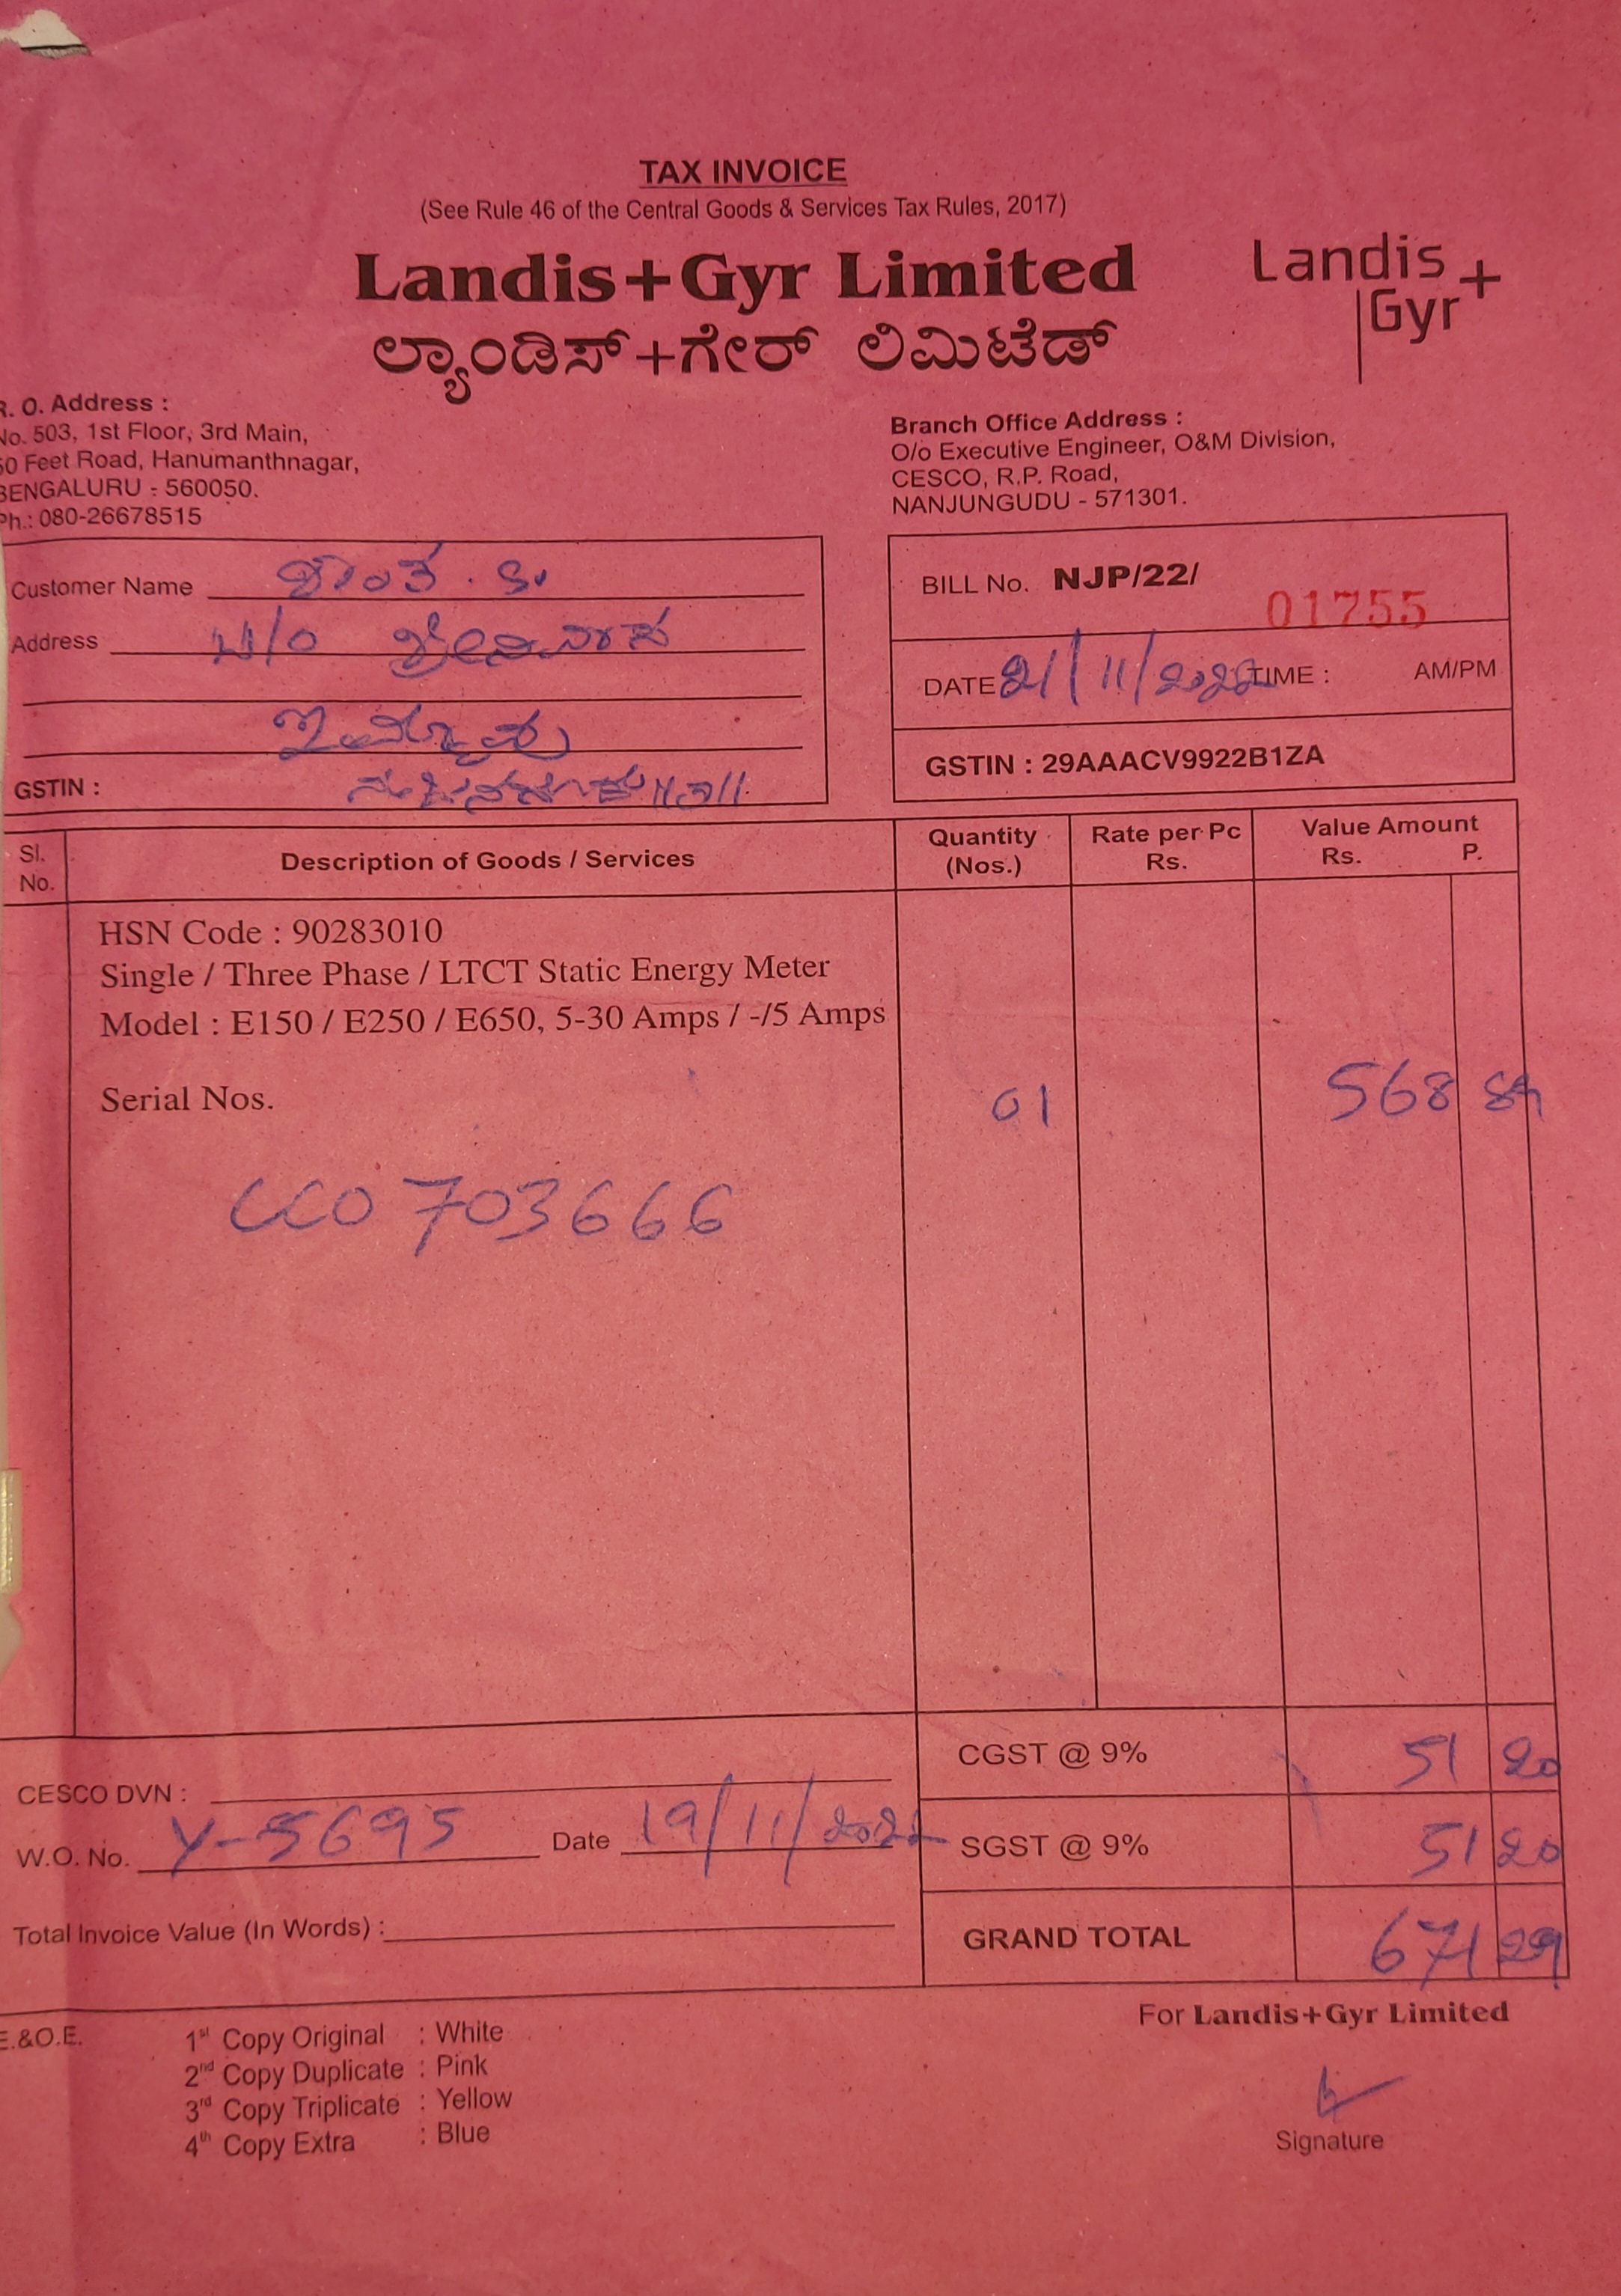 TAX INVOICE
(See Rule 46 of the Central Goods & Services Tax Rules, 2017)
Landis+Gyr Limited
ಲ್ಯಾಂಡಿಸ್+ಗೇರ್ ಲಿಮಿಟೆಡ್
Landis+
Gyr
R. O. Address :
No. 503, 1st Floor, 3rd Main,
50 Feet Road, Hanumanthnagar,
BENGALURU - 560050.
Ph.: 080-26678515
Branch Office Address :
O/o Executive Engineer, O&M Division,
CESCO, R.P. Road,
NANJUNGUDU - 571301.
Customer Name
Address W/O ಶ್ರೀನಿವಾಸ
GSTIN :
BILL No. NJP/22/ 01755
DATE 21/11/2022 TIME : AM/PM
GSTIN : 29AAACV9922B1ZA
Sl. No. Description of Goods / Services Quantity (Nos.) Rate per Pc Rs. Value Amount Rs. P.
HSN Code : 90283010
Single / Three Phase / LTCT Static Energy Meter
Model : E150 / E250 / E650, 5-30 Amps / -/5 Amps
Serial Nos. 01 568 89
CCO 703666
CGST @ 9% 51 20
CESCO DVN :
W.O. No. Y-5695 Date 19/11/2022
SGST @ 9% 51 20
Total Invoice Value (In Words) :
GRAND TOTAL 671 29
E.&O.E.
1st Copy Original : White
2nd Copy Duplicate : Pink
3rd Copy Triplicate : Yellow
4th Copy Extra : Blue
For Landis+Gyr Limited
Signature